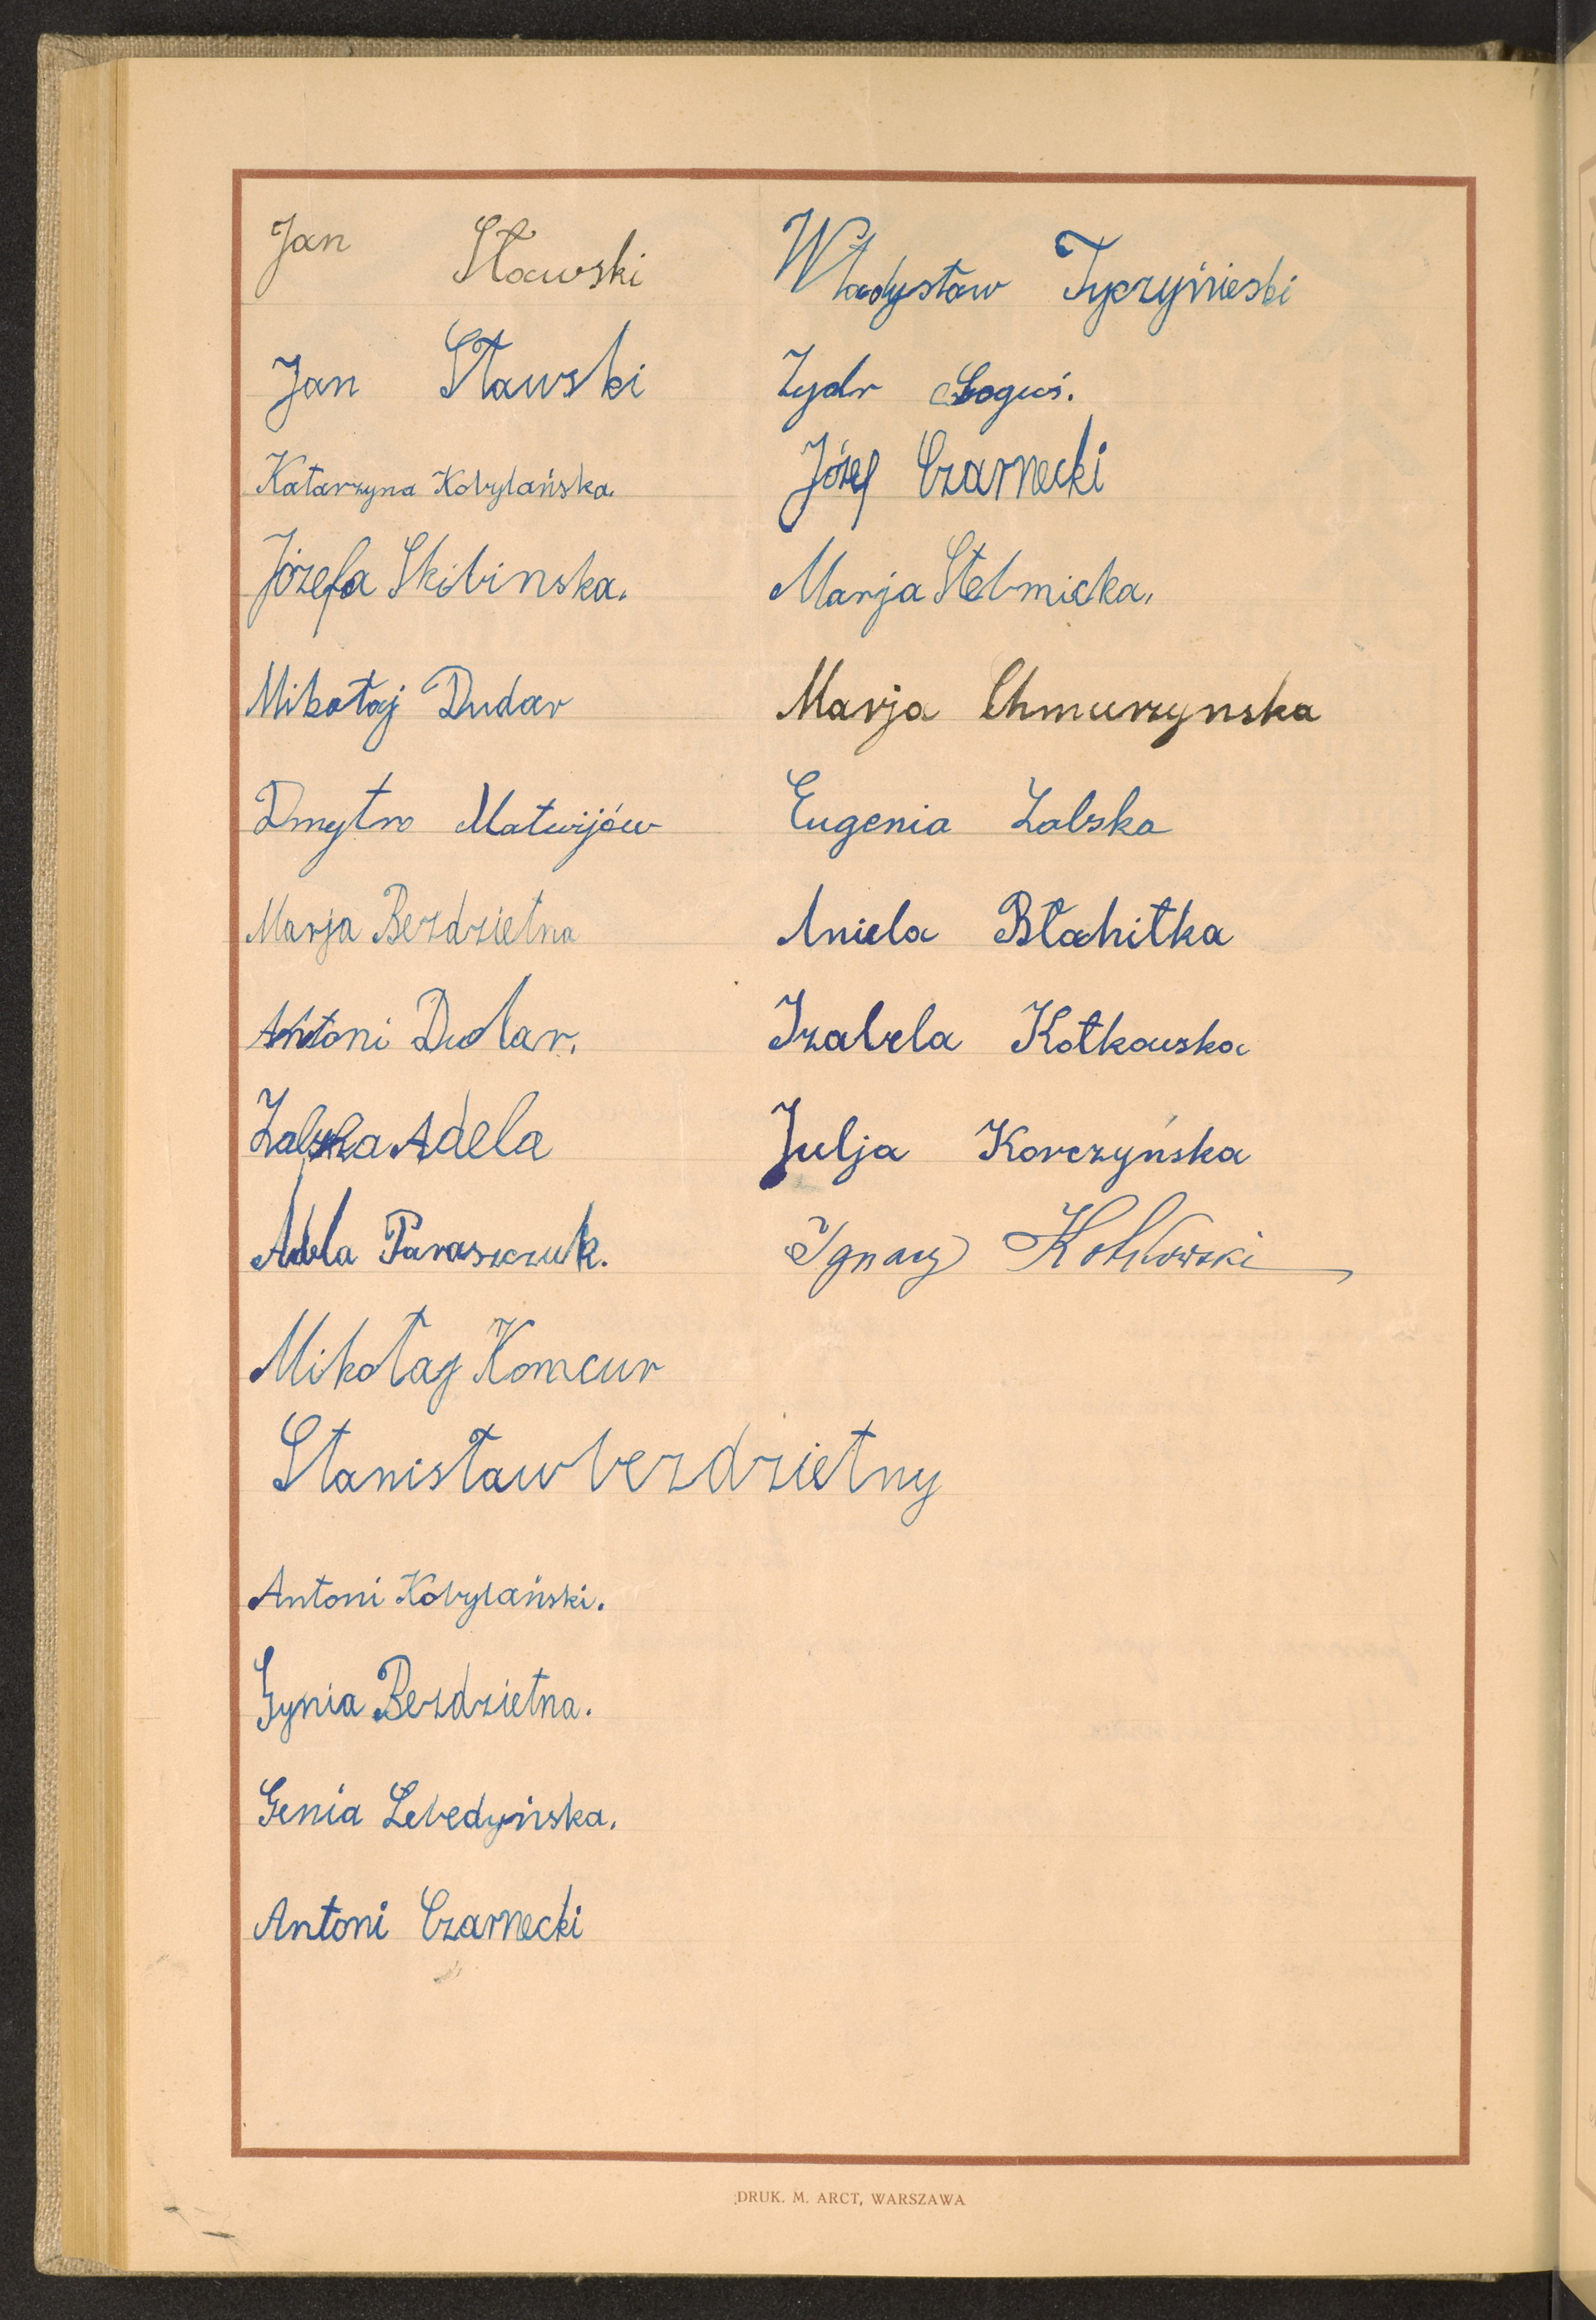 Jan Sławski
Jan Sławski
Katarzyna Kobylańska.
Józefa Skibinska.
Mikołaj Dudar
Dmytro Matwijów
Marja Bezdzietna
Antoni Dudar.
Zalska Adela
Adela Paraszczuk.
Mikołaj Komcur
Stanisław bezdzietny
Antoni Kobylański.
Gynia Bezdzietna.
Genia Lebedyńska.
Antoni Czarnecki
Władysław Tyczyńieski
Zydr
Józef Czarnecki
Marja Stebnicka.
Marja Chmurzynska
Eugenia Zalska
Aniela Błahitka
Izabela Kotkowska
Julja Korczyńska
Ignacy Kotkowski
DRUK. M. ARCT, WARSZAWA